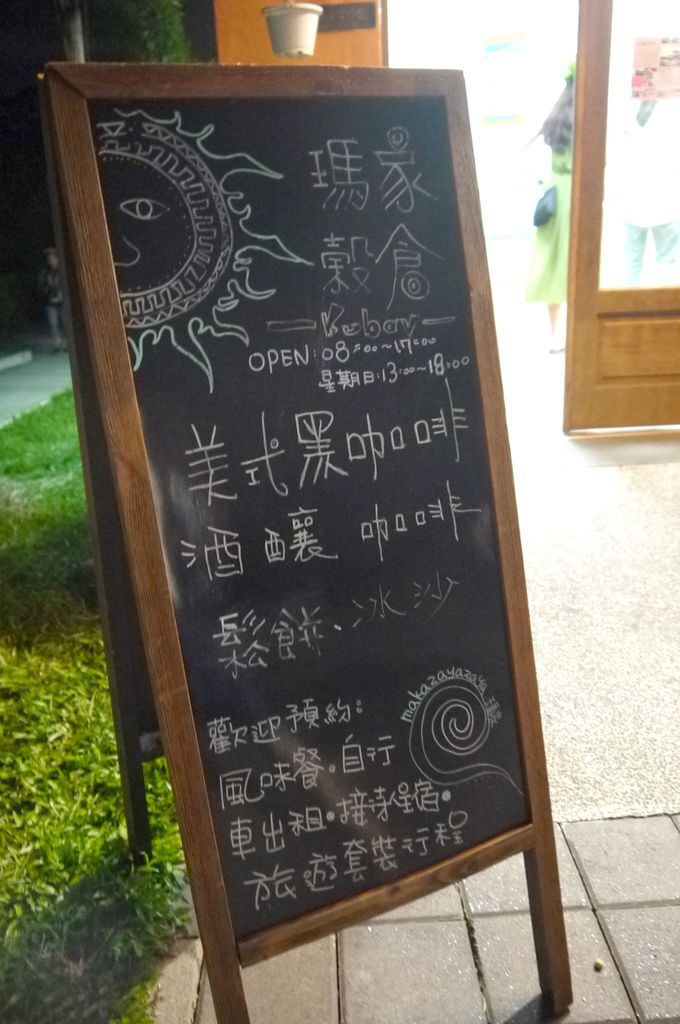 瑪家
穀倉
Kubav
OPEN:08:00~17:00
星期日:13:00~18:00
美式黑咖啡
酒釀咖啡
鬆餅、冰沙
makazayazaya
歡迎預約:
風味餐·自行
車出租·接待住宿·
旅遊套裝行程